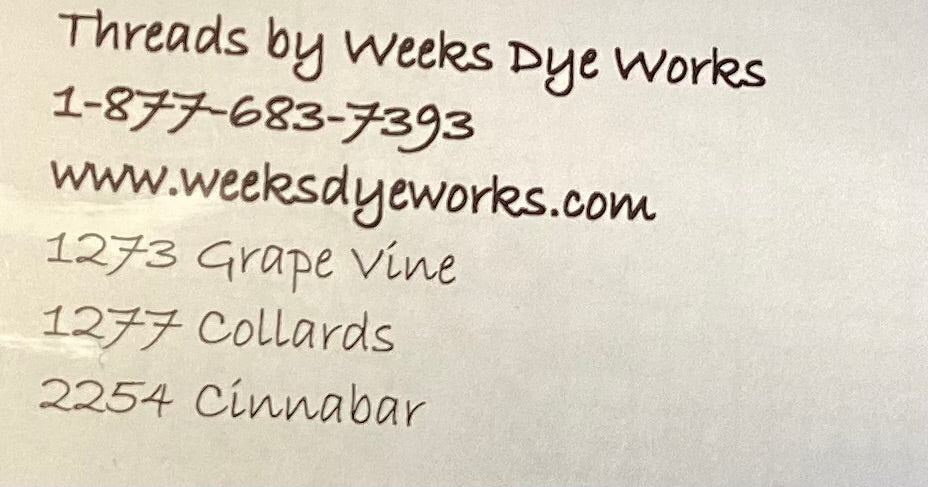 Threads by Weeks Dye Works
1-877-683-7393
www.weeksdyeworks.com
1273 Grape Vine
1277 Collards
2254 Cinnabar